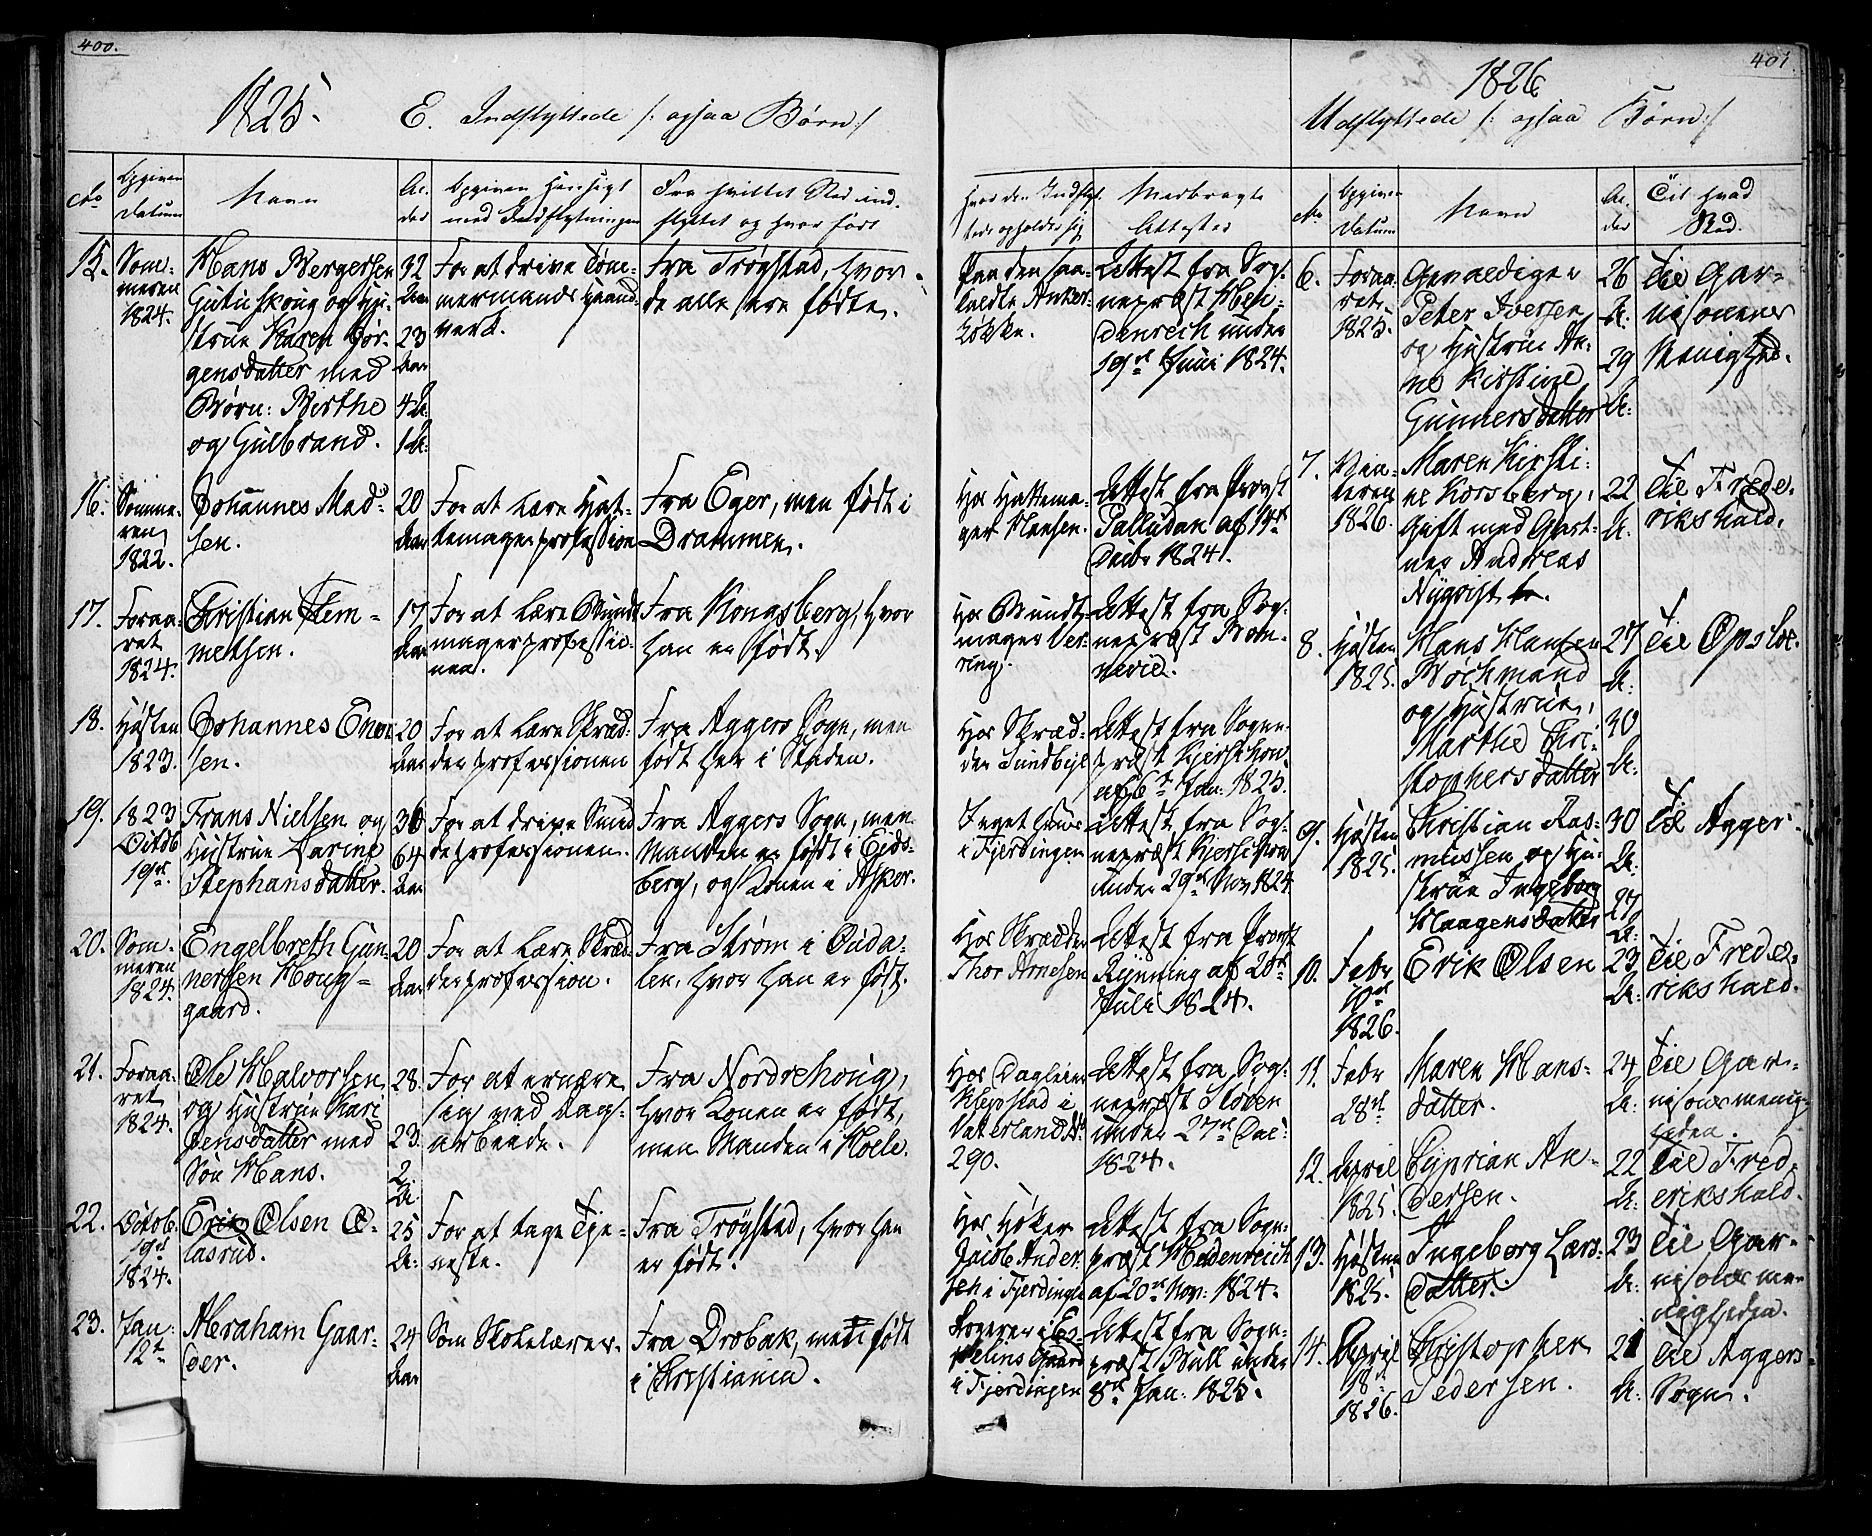 400.
1825.
E. Indflyttede /: ogsaa Børn :/
No
Opgiven
Datum
Navn
Al-
der
Opgiven Hensigt
med Indflytningen
Fra hvilket Sted ind-
flyttet og hvor født
Hvor den Indflyt-
tede opholder sig
Medbragte
Attester
15.
Som-
meren
1824.
Hans Bergersen
Gutuskoug og Hu-
strue Karen Jør-
gensdatter med
Børn: Berthe
og Gulbrand.
32
Aar
23
Aar
4 A.
1 A.
For at drive Tøm-
mermands Haand-
verk.
Fra Trøgstad, hvor
de alle ere fødte.
Paa den saa-
kaldte Anker-
Løkke.
Attest fra Sog-
nepræst Hei-
denreich under
19de Juni 1824.
16.
Somme-
ren
1822.
Johannes Mad-
sen.
20
Aar
For at lære Hat-
temagerprofession
Fra Eger, men født i
Drammen.
Hos Hattema-
ger
Attest fra Provst
Palludan af 14de
Decbr 1824.
17.
Foraa-
ret
1824.
Christian Clem-
metsen.
17
Aar
For at lære Bundt-
magerprofessio-
nen.
Fra Kongsberg, hvor
han er født.
Hos Bundt-
mager Ver-
ring.
Attest fra Sog-
nepræst
18.
Høsten
1823.
Johannes
sen.
20
Aar
For at lære Skræd-
derprofessionen
Fra Aggers Sogn, men
født her i Staden.
Hos Skræd-
der Sundbye
Attest fra Sogne-
præst Kjerschow
af 6te Jan: 1825.
19.
1823
Octob
19de
Frans Nielsen og
Hustrue Karine
Stephansdatter.
36
64
Aar
For at drive Smed-
deprofessionen.
Fra Aggers Sogn, men
Manden er født i Eids-
berg, og Konen i Asker.
Eget Huus
i Fjerdingen
Attest fra Sog-
nepræst Kjerschow
under 29de Nov 1824
20.
Som-
meren
1824.
Engelbreth Gun-
nersen Houg-
gaard.
20
Aar
For at lære Skræd-
derprofession.
Fra Strøm i Ouda-
len, hvor han er født.
Hos Skrædder
Thor Arnesen
Attest fra Provst
Rynning af 20de
Juli 1824.
21.
Foraa-
ret
1824.
Ole Halvorsen
og Hustrue Kari
Jensdatter med
Søn Hans.
28.
23.
2
A.
For at ernære
sig ved Dag-
arbeide.
Fra Nordrehoug,
hvor Konen er født,
men Manden i Hole.
Hos Dagleier
Klepstad i
Vaterland No
290.
Attest fra Sog-
nepræst Støren
under 27de Dec:
1824.
22.
Octob.
19de
1824.
Erik Olsen O-
lasrud.
25
A.
For at tage Tje-
neste.
Fra Trøgstad, hvor han
er født.
Hos Høker
Jacob Ander-
sen i Fjerdingen
Attest fra Sogn-
præst Heidenreich
af 20de Nov: 1824.
23.
Jan:
12te
Abraham Gaar-
der.
24
Aar
Som Skolelærer.
Fra Drøbak, men født
i Christiania.
Logerer i Es-
pelins Gaard
i Fjerdingen
Attest fra Sogn-
præst Bull under
8de Jan: 1825.
401.
1826
Udflyttede /: ogsaa Børn :/
No
Opgiven
Datum
Navn
Al-
der
Til hvad
Sted.
6.
Foraa-
ret
1825.
Gevaldiger
Peter Iversen
og Hustrue An-
ne Kirstine
Gunnersdatter
26
A.
29
A.
Til Gar-
nisonens
Menighed.
7.
Vin-
teren
1826.
Maren Kirsti-
ne Korsberg,
Gift med Gart-
ner Andreas
Nyqvist
22
A.
Til Frede-
rikshald.
8.
Høsten
1825.
Hans Hansen
Bøchmand
og Hustrue,
Marthe Chri-
stophersdatter
27
A.
30
A.
Til Opsloe.
9.
Høsten
1825.
Christian Ras-
mussen og Hu-
strue Ingeborg
Haagensdatter
30
A.
27
A.
Til Agger.
10.
Febr
10de
1826.
Erik Olsen
23
A.
Til Frede-
rikshald.
11.
Febr
28de
Maren Hans-
datter.
24
A.
Til Gar-
nisonsmenig-
heden.
12.
April
1825.
Cyprian An-
dersen.
22
A.
Til Fred-
erikshald.
13.
Høsten
1825.
Ingeborg Lars-
datter.
23
A.
Til Gar-
nisonsme-
nigheden.
14.
April
18de
1826.
Christopher
Pedersen.
21
A.
Til Aggers-
Sogn.